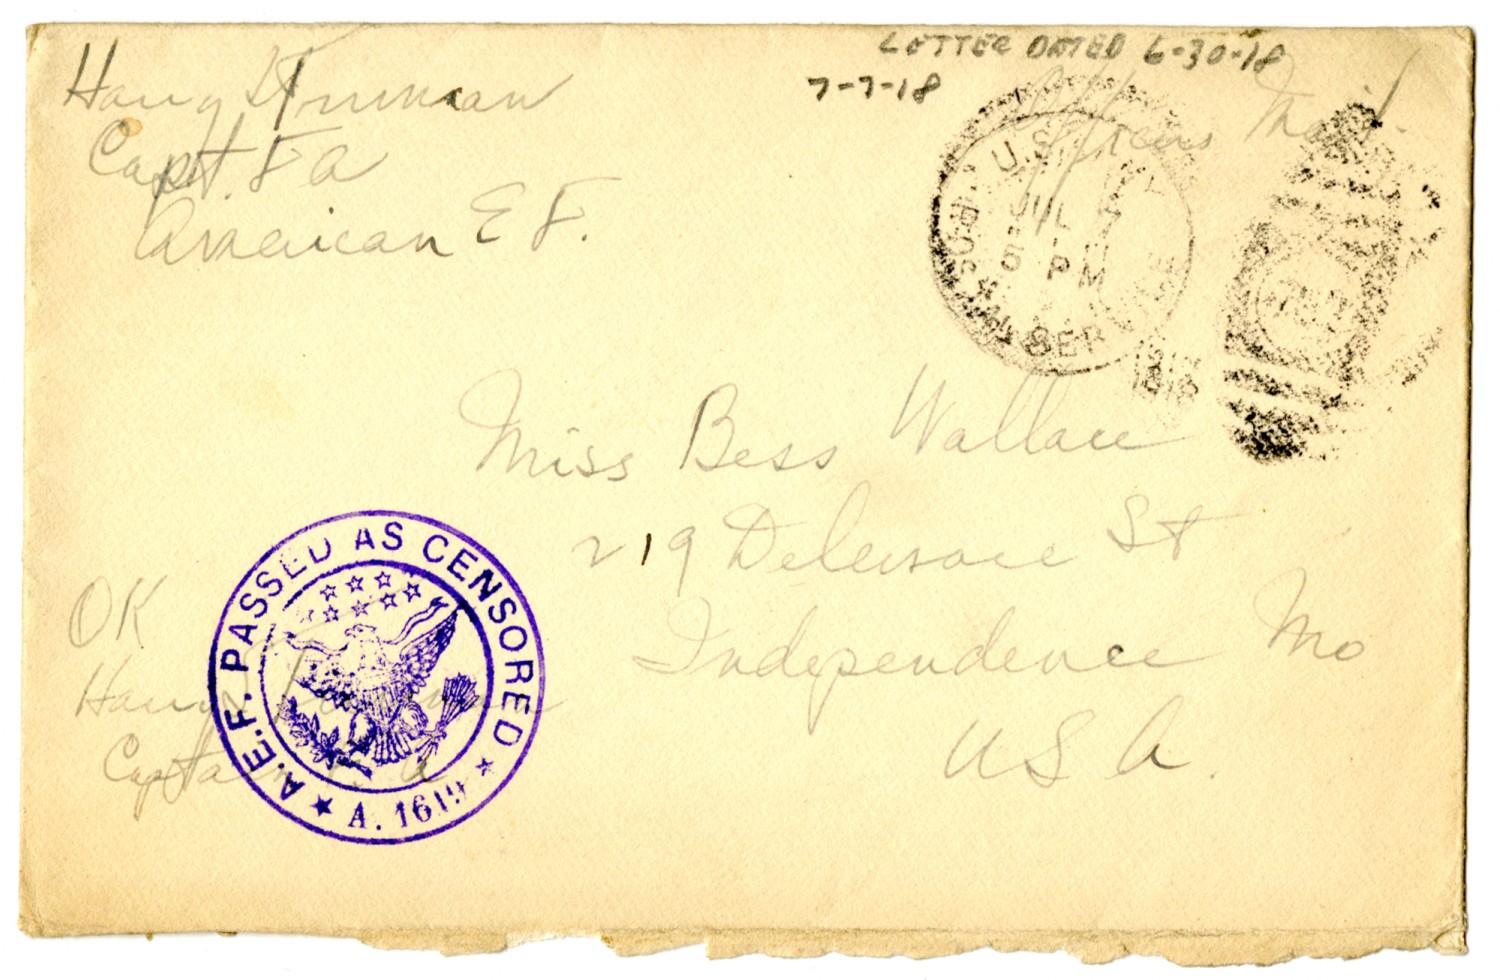 LETTER DATED 6-30-18
7-7-18
Harry S Truman
Capt. F A
American E F.
Officers Mail.
U.S.
JUL 7
5 PM
POSTAL SER
1918
Miss Bess Wallace
219 Delaware St
Independence Mo
U S A.
OK
Harry Truman
Captain F. A
A.E.F. PASSED AS CENSORED
A. 1619